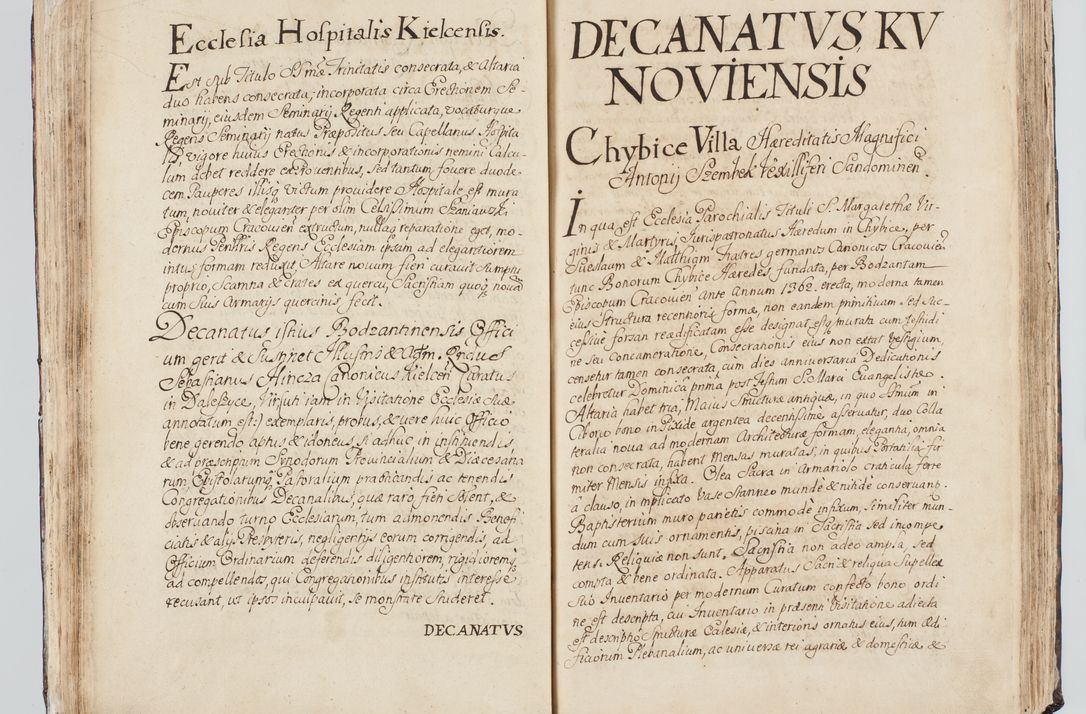 Ecclesia Hospitalis Kielcensis.
Est sub Titulo SSmæ Trinitatis consecrata, & Altaria
duo habens consecrata, incorporata circa Erectionem Se-
minarij, eiusdem Seminarij Regenti applicata, vocaturque
Regens Seminarij natus Præpositus seu Capellanus Hospita
lis, vigore huius Erectionis & incorporationis nemini Calcu-
lum debet reddere ex Proventibus, sed tantum fovere duode
cem Pauperes illisq victum providere Hospitale est mura
tum, noviter & eleganter per olim Celsissimum Szaniawski
Episcopum Cracovien extructum, nullaq reparatione eget, mo-
dernus Regens Ecclesiam ipsam ad elegantiorem
intus formam reduxit, Altare novum fieri curavit sumptu
proprio, Scamna & crates ex quercu, Sacristiam quoq novam
cum suis Armarijs quercinis fecit.
Decanatus istius Bodzantinensis Offici
um gerit & sustinet Illustris & Adm. Rndus
Sebastianus Hincza Canonicus Kielcen Curatus
in Daleszyce, Vir (uti iam in Visitatione Ecclesiæ suæ
annotatum est) exemplaris, probus, & vere huic Officio
bene gerendo aptus & idoneus, si adhuc in instituendis
& ad præscriptum Synodorum Provincialium & Diæcesana
rum, Epistolarumq Pastoralium practicandis ac tenendis
Congregationibus Decanalibus, quæ raro fieri solent, &
observando turno Ecclesiarum, tum admonendis Benefi
ciatis & alijs Presbyteris, negligentijs eorum corrigendis, ad
Officium Ordinarium deferendis diligentiorem, rigidioremq
ad compellendos, qui Congregationibus institutis interesse
recusant, ut ipsos inculpavit, se monstrare studeret.
DECANATVS
DECANATVS KV
NOVIENSIS
Chybice Villa Hæreditatis Magnifici
Antonij Szembek Vexilliferi Sandominen.
In qua est Ecclesia Parochialis Tituli S. Margarethæ Vir-
ginis & Martyris, Jurispatronatus Hæredum in Chybice, per
Sueslaum & Matthiam Fratres germanos Canonicos Cracovien
tunc Bonorum Chybice Hæredes, fundata, per Bodzantam
Episcopum Cracovien ante Annum 1362. erecta, moderna tamen
eius Structura recentioris formæ, non eandem primitivam sed suc-
cessive forsan reædificatam esse designat, estq murata cum testudi
ne seu Concameratione, Consecrationis eius non extat vestigium,
censetur tamen consecrata, cum dies anniversaria Dedicationis
celebretur Dominica prima post Festum S. Marci Euangelistæ.
Altaria habet tria, Maius structuræ antiquæ, in quo SSmum in
Ciborio bono in Pixide argentea decentissime asservatur, duo Colla
teralia nova ad modernam Architecturæ formam, elegantia, omnia
non consecrata, habent Mensas muratas, in quibus Portatilia fir
miter Mensis infixa. Olea Sacra in Armariolo craticula ferre
a clauso, in triplicato Vase Stanneo munde & nitide conservant.
Baptisterium muro parietis commode infixum, similiter mun-
dum cum suis ornamentis, piscina in Sacristia sed incompe
tens. Reliquiæ non sunt, Sacristia non adeo ampla, sed
compta & bene ordinata. Apparatus Sacri & reliqua Supellex
sub Inventario per modernum Curatum confecto bono ordi
ne est descripta, cui Inventario in præsenti Visitatione adiecta
est descriptio Structuræ Ecclesiæ, & interioris ornatus eius, tum Ædi
ficiorum Plebanalium, ac universæ rei agrariæ & domesticæ &